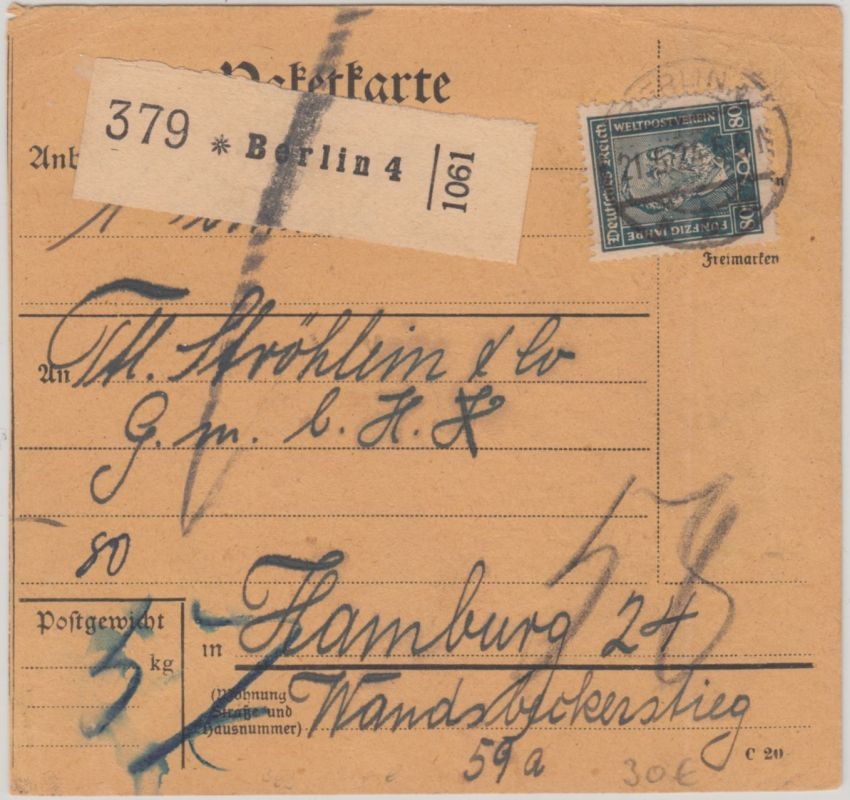 Paketkarte
379 * Berlin 4 1061
BERLIN
Deutsches Reich WELTPOSTVEREIN 80
FÜNFZIG JAHRE 80
Freimarken
An Th. Ströhlein & Co
G. m. b. H.
80
Postgewicht
5 kg
in Hamburg 24
(Wohnung
Straße und
Hausnummer)
Wandsbeckerstieg
59 a
C 20
30€